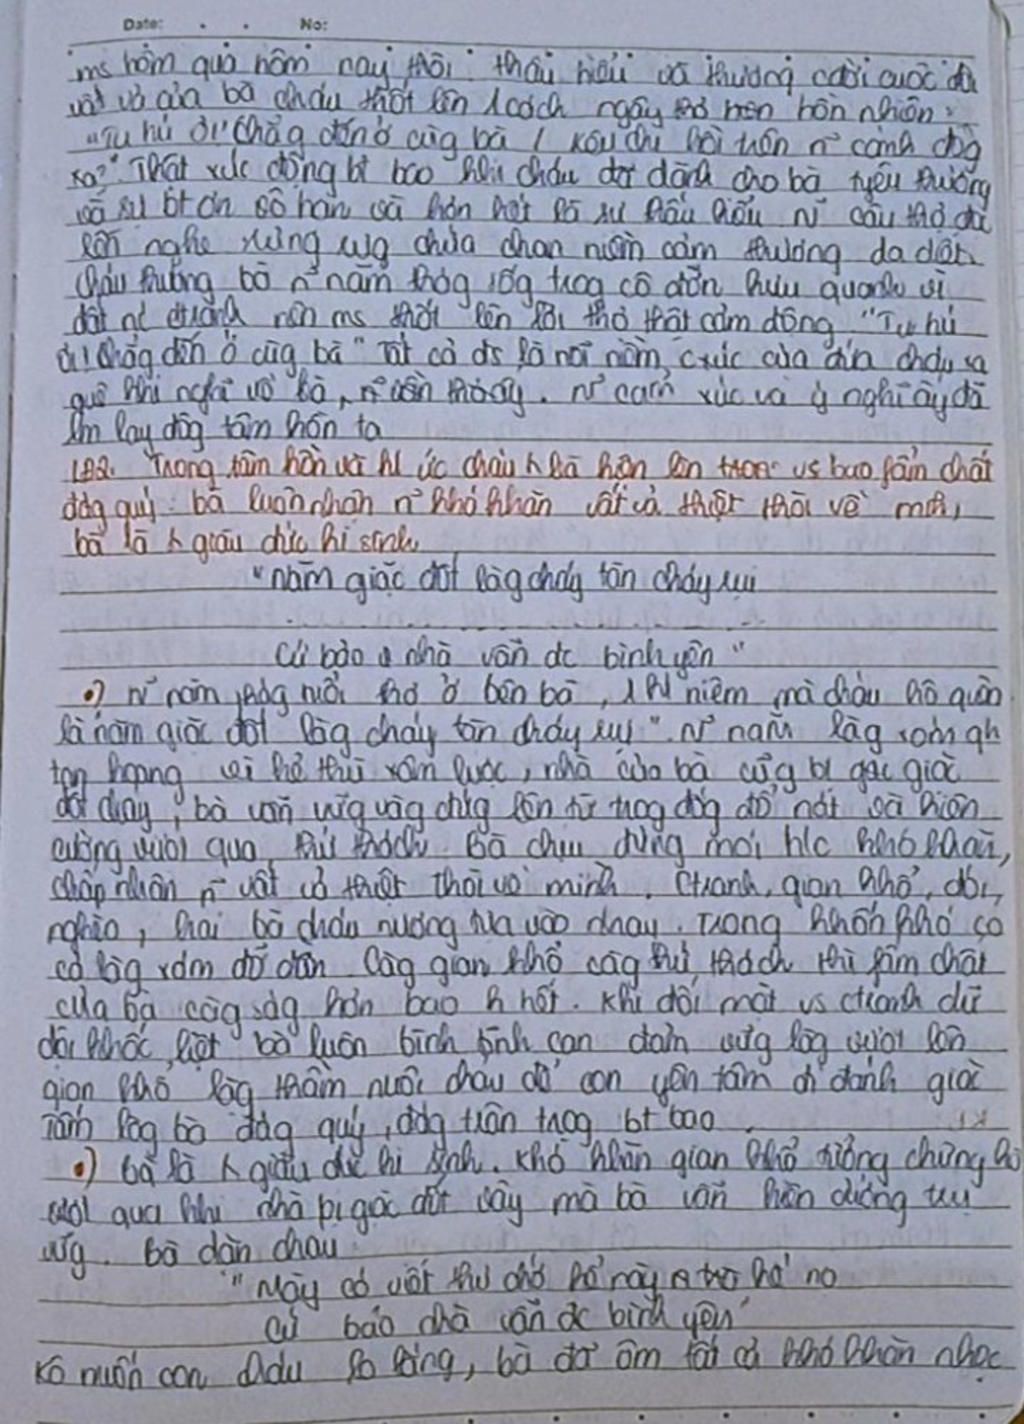 Date: . . No:
ms hôm qua hôm nay thôi thấu hiểu và thương cả đời cuộc đời
vất vả của bà cháu thốt lên 1 cách ngây thơ hồn nhiên:
"Tu hú ơi! Chẳg đến ở cùg bà / Kêu chi hoài trên n~ cánh đồg
xa?" Thật xúc động bt bao khi cháu đã dành cho bà tình yêu thương
và sự bt ơn vô hạn và hơn hết là sự thấu hiểu n~ câu thơ
nghe rưng rưg chứa chan niềm cảm thương da diết.
Cháu thương bà n~ năm thág sốg trog cô đơn hưu quạnh vì
đất nc ctranh nên ms thốt lên lời thơ thật cảm động "Tu hú
ơi! Chẳg đến ở cùg bà" Tất cả đs là nỗi niềm, cxúc của đứa cháu xa
quê khi nghĩ về bà, n~ vần thơ ấy. n~ cảm xúc và ý nghĩ ấy đã
làm lay độg tâm hồn ta
1.B2. Trong tâm hồn và kí ức cháu h/ả bà hiện lên vs bao fẩm chất
đág quý: bà luôn nhận n~ khó khăn vất vả thiệt thòi về mình,
bà là ng giàu đức hi sinh
"Năm giặc đốt làg cháy tàn cháy rụi
. . . . . .
Cứ bảo nhà vẫn đc bình yên"
•) n~ năm thág tuổi thơ ở bên bà, 1 kỉ niệm mà cháu khô quên
là năm giặc đốt làg cháy tàn cháy rụi". N~ năm làg xóm
tan hoang vì kẻ thù xâm lược, nhà của bà cũg bị giặc
đốt cháy, bà vẫn vữg vàg đứg lên từ trog đốg đổ nát và kiên
cường vượt qua thử thách. Bà chịu đựng mọi khó khăn,
chấp nhận n~ vất vả thiệt thòi về mình. Ctranh, gian khổ, đói,
nghèo, hai bà cháu nương tựa vào nhau. Trong khốn khó có
cả làg xóm đỡ đần. Càg gian khổ càg thử thách thì fẩm chất
của bà càg ság hơn bao h hết. Khi đối mặt vs ctranh dữ
dội khốc liệt bà luôn bình tĩnh can đảm vữg lòg vượt lên
gian khổ lặg thầm nuôi cháu để con yên tâm đi đánh giặc
Tấm lòg bà đág quý, đág trân trọg bt bao.
•) Bà là ng giàu đức hi sinh. Khó khăn gian khổ tưởng chừng khó
vượt qua khi nhà bị giặc đốt vậy mà bà vẫn kiên cường trụ
vữg. Bà dặn cháu
"Mày có viết thư chớ kể này kể nọ
Cứ bảo nhà vẫn đc bình yên"
Kô muốn con cháu lo lắng, bà đã ôm tất cả khó khăn nhọc